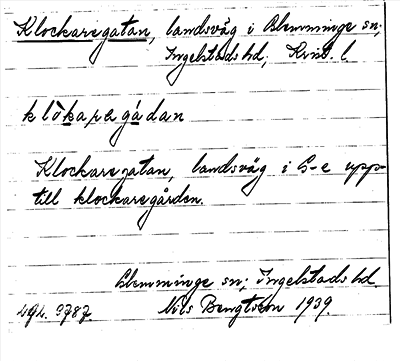 Klockaregatan, landsväg i Glemminge sn;
Ingelstads hd; Krist. l.
klòkaragádan
Klockaregatan, landsväg i G-e upp-
till klockaregården.
Glemminge sn; Ingelstads hd.
Nils Bengtsson 1939.